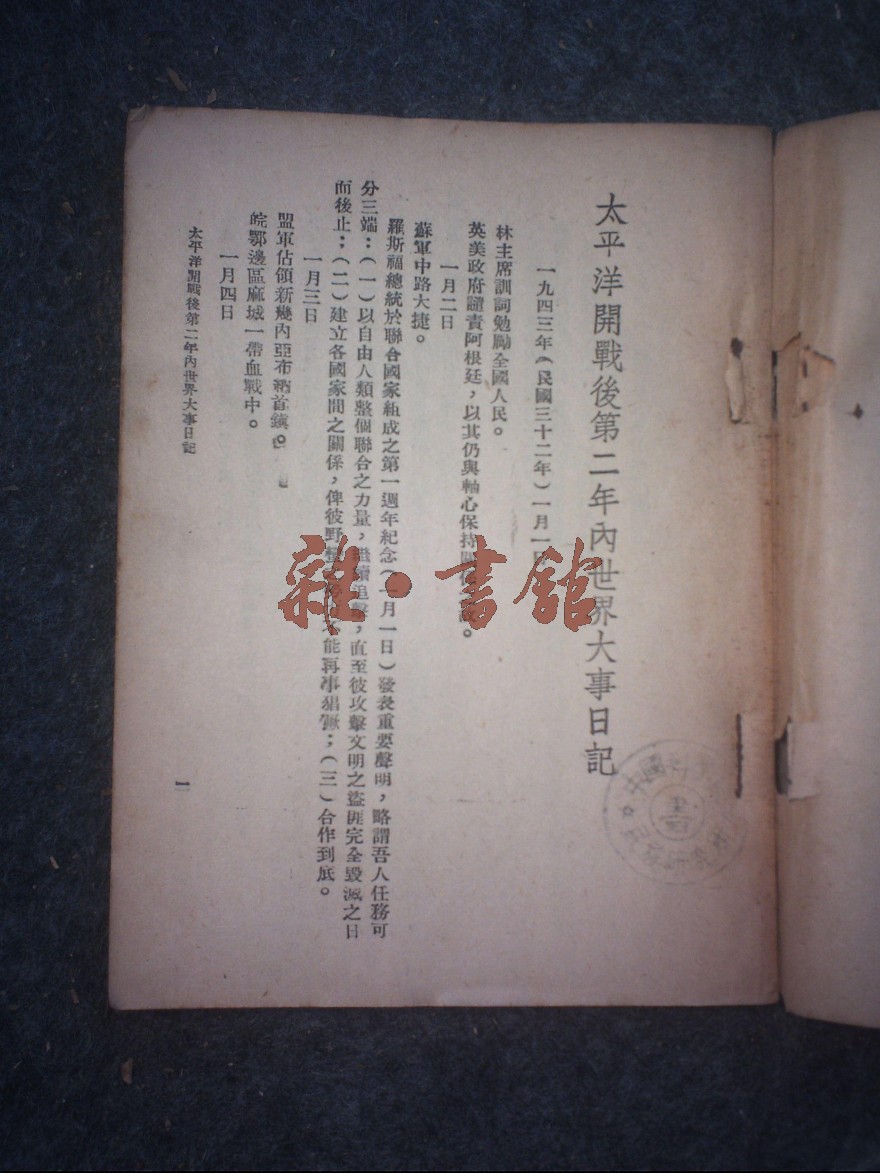 太平洋開戰後第二年內世界大事日記
一九四三年(民國三十二年)一月一日
林主席訓詞勉勵全國人民。
英美政府譴責阿根廷,以其仍與軸心保持。
一月二日
蘇軍中路大捷。
羅斯福總統於聯合國家組成之第一週年紀念(一月一日)發表重要聲明,略謂吾人任務可
分三端:(一)以自由人類整個聯合之力量,繼續追擊,直至彼攻擊文明之盜匪完全毀滅之日
而後止;(二)建立各國家間之關係,俾彼野能再事猖獗;(三)合作到底。
一月三日
盟軍佔領新幾內亞布納首鎮。
皖鄂邊區麻城一帶血戰中。
一月四日
太平洋開戰後第二年內世界大事日記
一
雜·書館